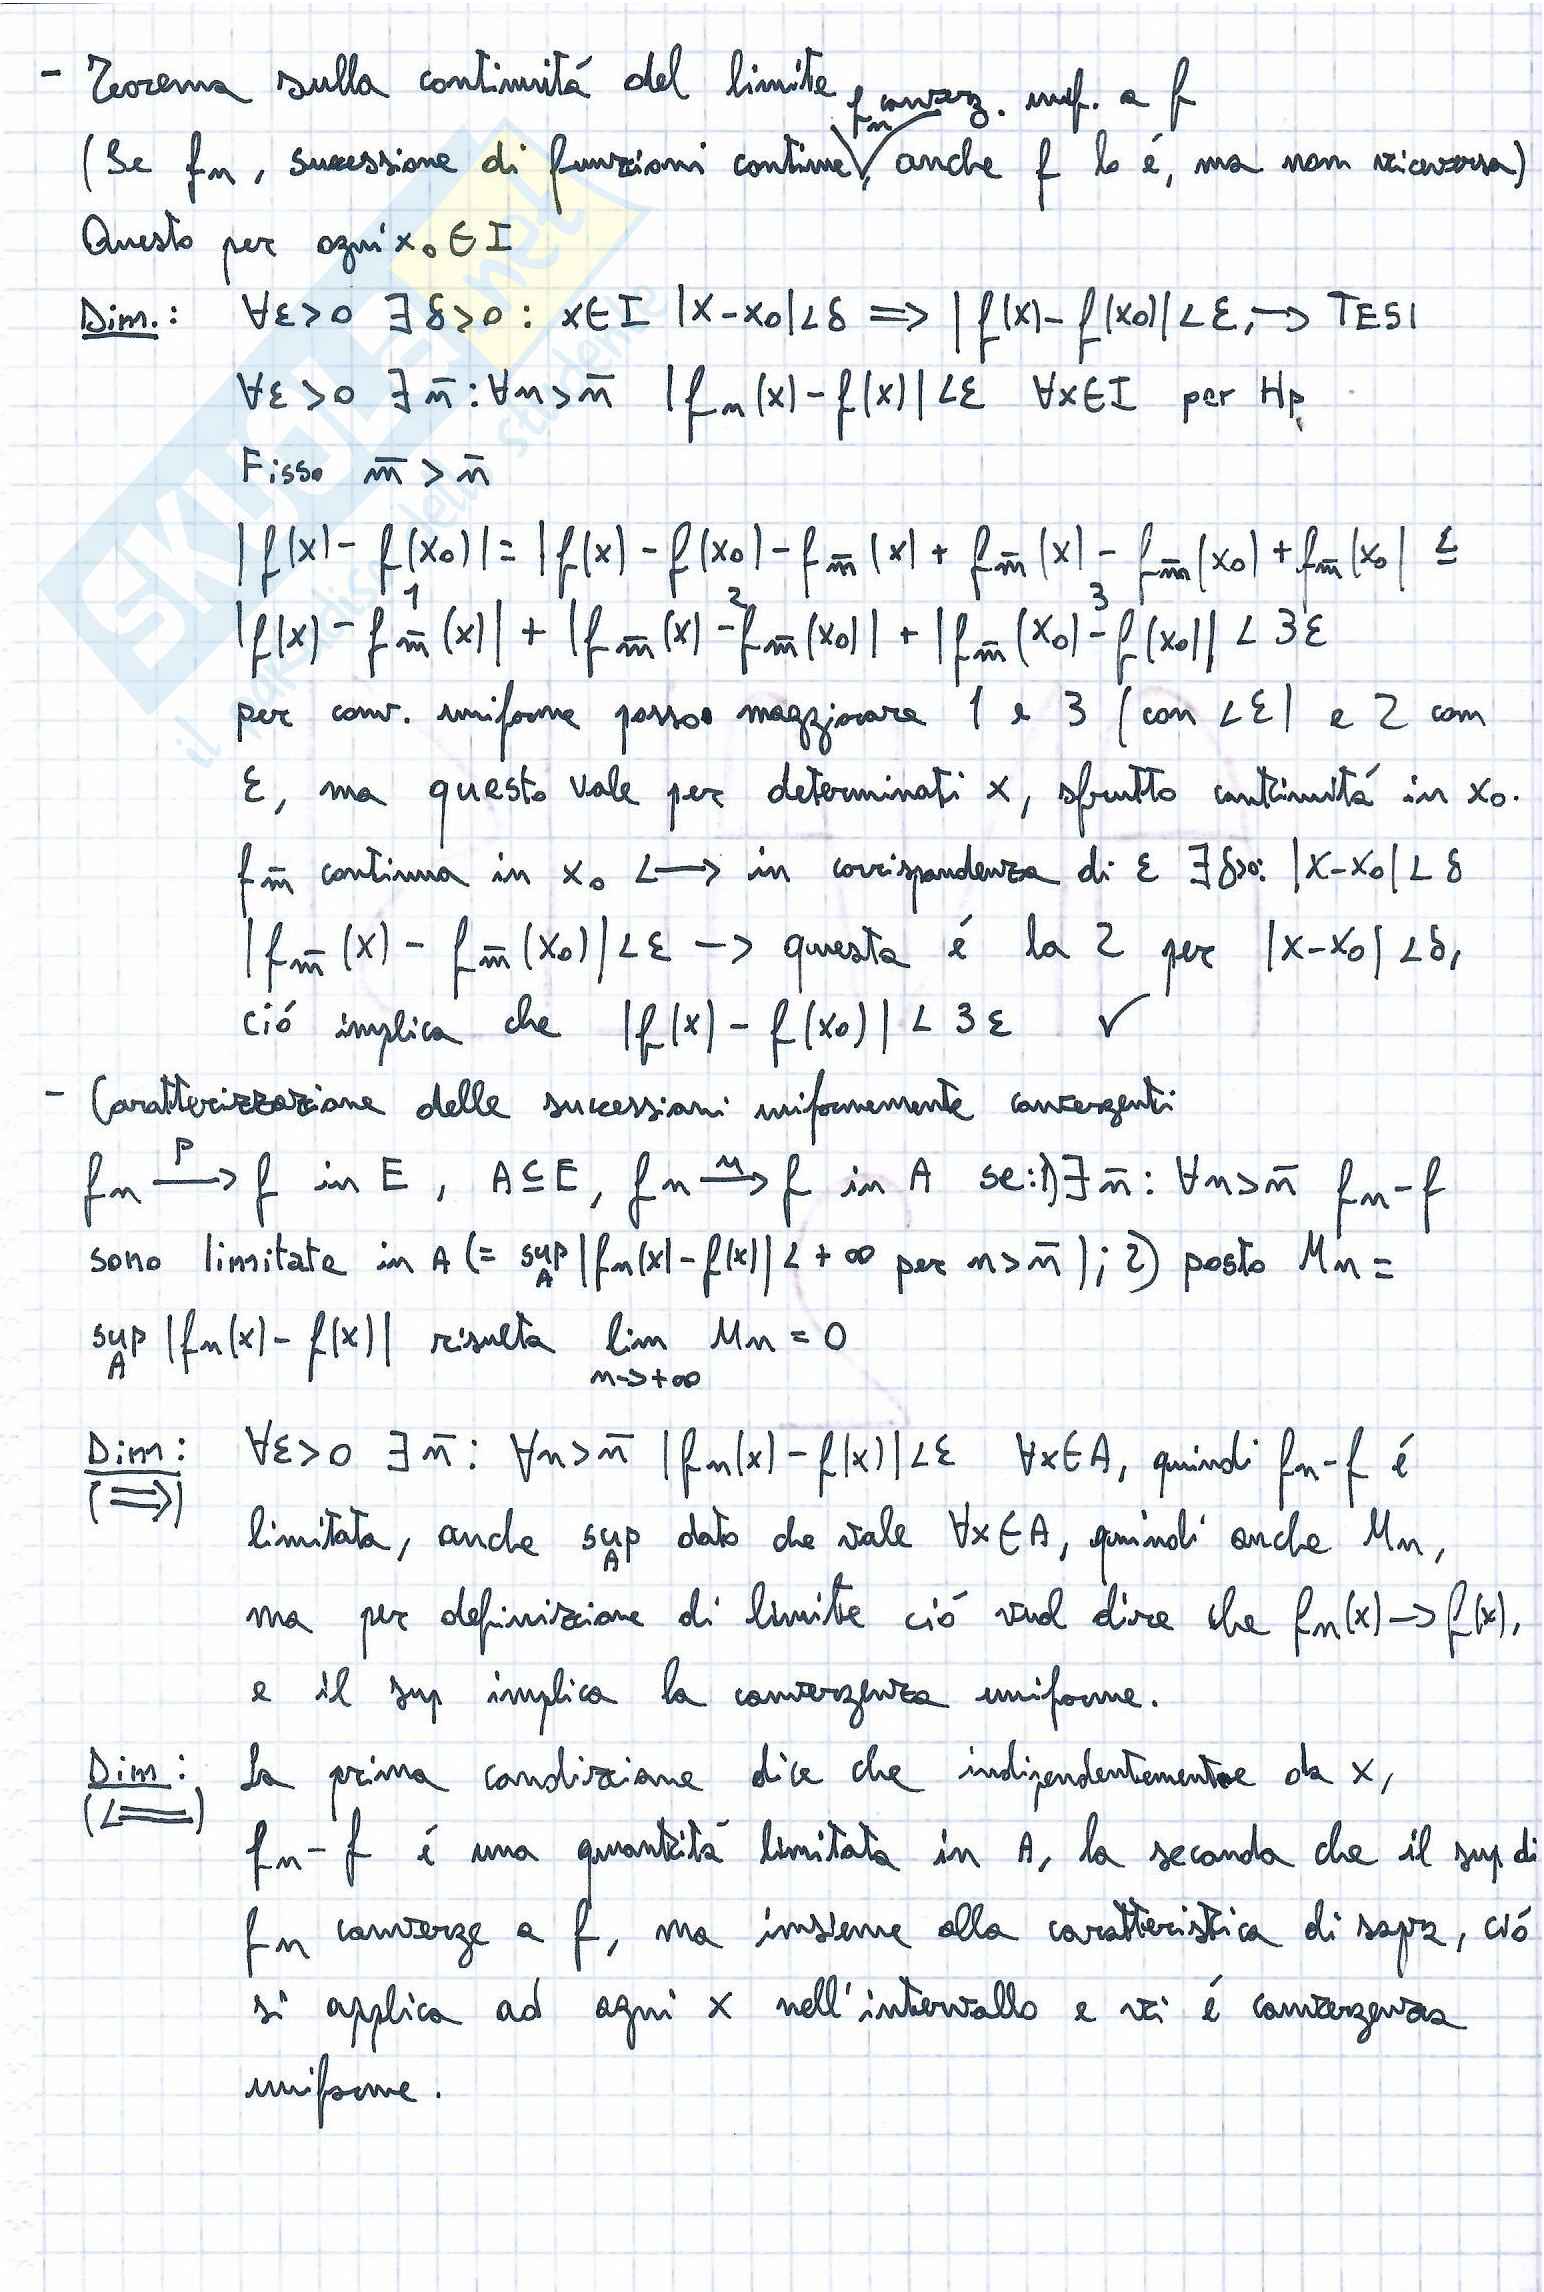 - Teorema sulla continuitá del limite
fn converg. unif. a f
(Se fn, successione di funzioni continue, anche f lo é, ma non viceversa)
Questo per ogni x₀∈I
Dim.: ∀ε>0 ∃δ>0: x∈I |x-x₀|<δ ⟹ |f(x)-f(x₀)|<ε, → TESI
∀ε>0 ∃n̄: ∀n>n̄ |fn(x)-f(x)|<ε ∀x∈I per Hp.
Fisso m̄ > n̄
|f(x)-f(x₀)| = |f(x)-f(x₀)-fm̄(x)+fm̄(x)-fm̄(x₀)+fm̄(x₀| ≤
1 2 3
|f(x)-fm̄(x)| + |fm̄(x)-fm̄(x₀)| + |fm̄(x₀)-f(x₀)| < 3ε
per conv. uniforme posso maggiorare 1 e 3 (con <ε) e 2 con
ε, ma questo vale per determinati x, sfrutto continuitá in x₀.
fm̄ continua in x₀ <—> in corrispondenza di ε ∃δ>0: |x-x₀|<δ
|fm̄(x)-fm̄(x₀)|<ε -> questa é la 2 per |x-x₀|<δ,
ció implica che |f(x)-f(x₀)|<3ε ✓
- Caratterizzazione delle successioni uniformemente convergenti
fn —p→ f in E, A⊆E, fn —u→ f in A se: 1)∃n̄: ∀n>n̄ fn-f
sono limitate in A (= sup A |fn(x)-f(x)|<+∞ per n>n̄); 2) posto Mn =
sup A |fn(x)-f(x)| risulta lim n->+∞ Mn = 0
Dim: ∀ε>0 ∃n̄: ∀n>n̄ |fn(x)-f(x)|<ε ∀x∈A, quindi fn-f é
(⟹) limitata, anche sup A dato che vale ∀x∈A, quindi anche Mn,
ma per definizione di limite ció vuol dire che fn(x)->f(x),
e il sup implica la convergenza uniforme.
Dim: La prima condizione dice che indipendentemente da x,
(⟸) fn-f é una quantitá limitata in A, la seconda che il sup di
fn converge a f, ma insieme alla caratteristica di sopra, ció
si applica ad ogni x nell'intervallo e vi é convergenza
uniforme.
SKUOLA.net
il paradiso dello studente